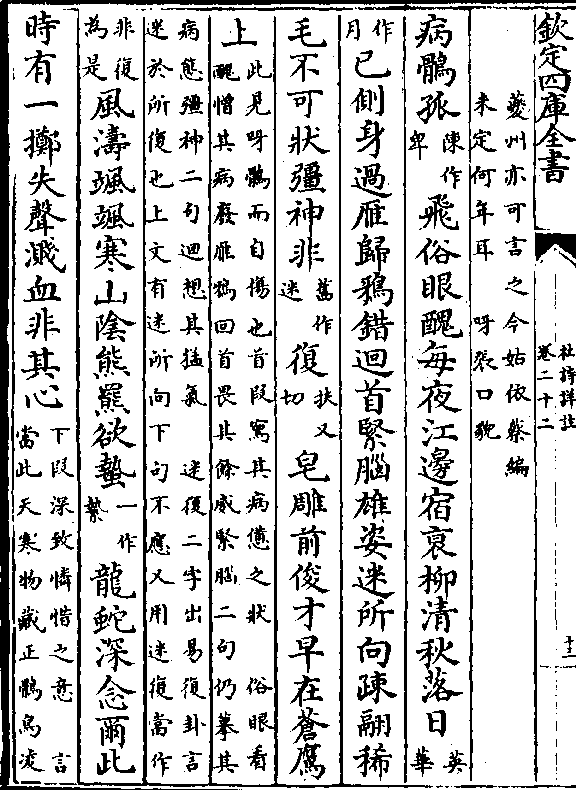 欽定四庫全書
杜詩詳註
卷二十二
夔州亦可言之今姑依蔡編
未定何年耳　呀張口貌
病鶻孤陳作卑飛俗眼醜每夜江邊宿衰柳清秋落日英華
作月已側身過雁歸鴉錯迴首緊腦雄姿迷所向疎翮稀
毛不可狀彊神非舊作迷復扶又切皂雕前俊才早在蒼鷹
上此見呀鶻而自傷也首段寫其病憊之狀　俗眼看
醜憎其病廢雁鴉回首畏其餘威緊腦二句仍摹其
病態彊神二句迴想其猛氣　迷復二字出易復卦言
迷於所復也上文有迷所向下句不應又用迷復當作
非復為是風濤颯颯寒山陰熊羆欲蟄一作縶龍蛇深念爾此
時有一擲失聲濺血非其心下段深致憐惜之意　言
當此天寒物藏正鶻鳥凌